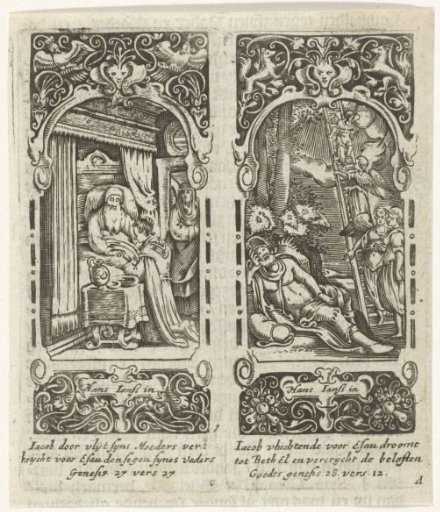 Hans Iansſ in
Iacob door vlijt ſyns Moeders ver:
krycht voor Eſau den ſegen ſynes Vaders
Geneſis 27 vers 27
c
Hans Ianſſ in
Iacob vluchtende voor Eſau droomt
tot Beth El en vercrycht de beloften
Goodts geneſis 28. vers. 12.
d